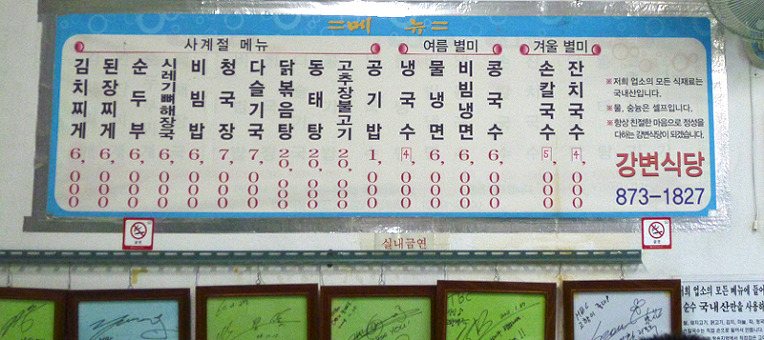 =메 뉴=
사계절 메뉴
김치찌게 6,000
된장찌게 6,000
순두부 6,000
시레기뼈해장국 6,000
비빔밥 6,000
청국장 7,000
다슬기국 7,000
닭볶음탕 20,000
동태탕 20,000
고추장불고기 20,000
공기밥 1,000
여름 별미
냉국수 4,000
물냉면 6,000
비빔냉면 6,000
콩국수 6,000
겨울 별미
손칼국수 5,000
잔치국수 4,000
※저희 업소의 모든 식재료는
국내산입니다.
※물, 숭늉은 셀프입니다.
※항상 친절한 마음으로 정성을
다하는 강변식당이 되겠습니다.
강변식당
873-1827
금연
금연
실내금연
TBC
MBC
저희 업소의 모든 메뉴에 들어
순수 국내산만을 사용하